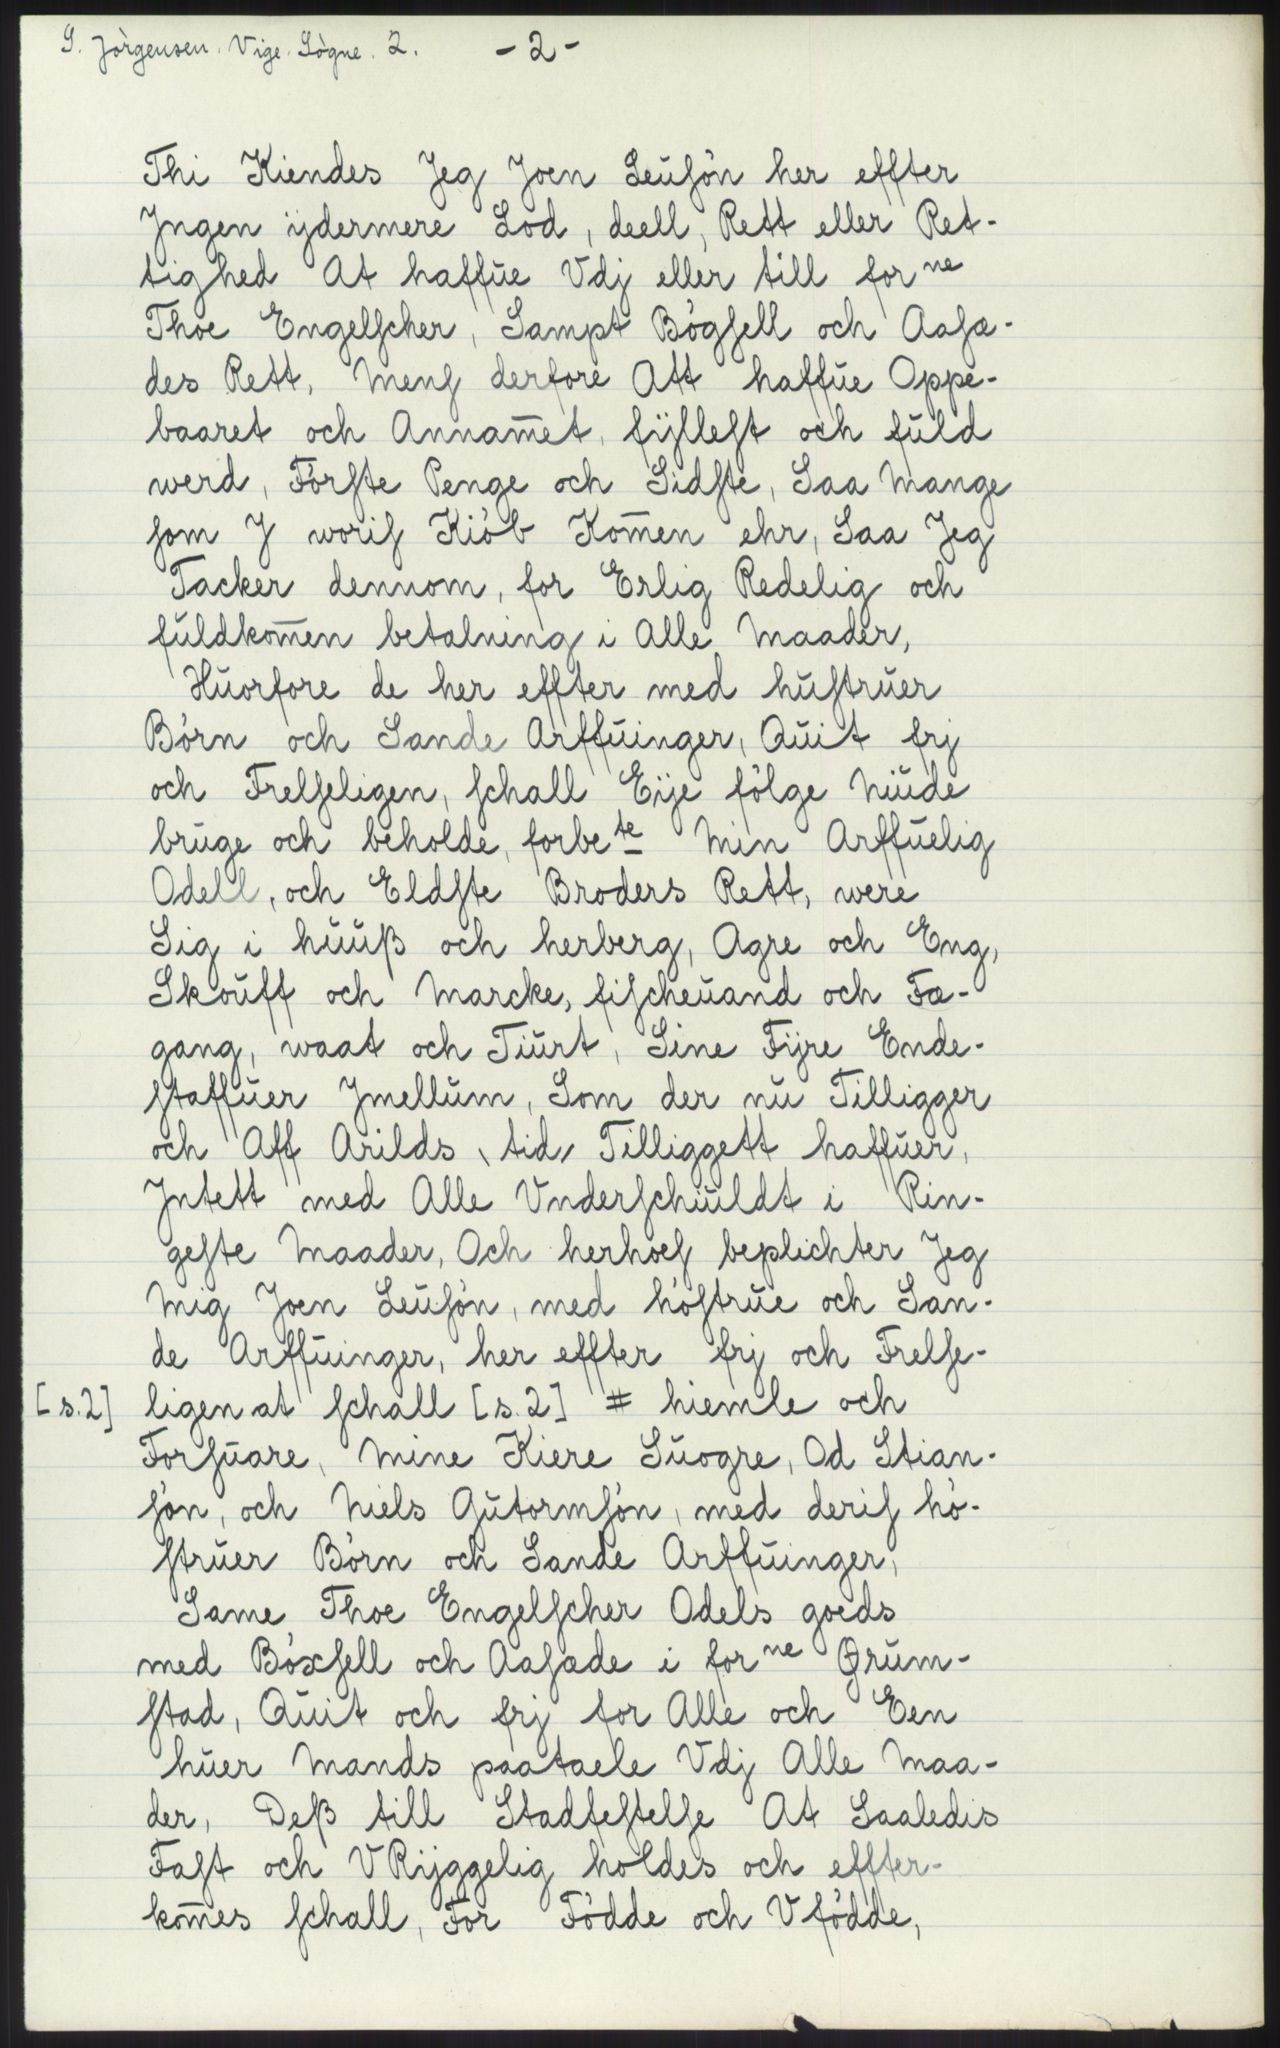 S. Jòrgensen. Vige. Sògne. 2. - 2 -
Thi Kiendes Jeg Joen Leŭsòn her effter
Jngen ÿdermere Lod, deell, Rett eller Ret-
tighed At haffŭe Vdj eller till for ne
Thoe Engelscher, Sampt Bògsell och Aasæ-
des Rett, Mens derfore Att haffŭe Oppe-
baaret och Annam̅et, fÿllest och fŭld
werd, Fòrste Penge och Sidste, Saa Mange
som J woris Kiòb Kom̅en ehr, Saa Jeg
Tacker dennom, for Erlig Redelig och
fŭldkom̅en betalning i Alle Maader,
Hŭorfore de her effter med hŭstrŭer
Bòrn och Sande Arffŭinger, Qŭit frj
och Frelseligen, schall Eÿe fòlge Nŭde
brŭge och beholde, forbe te Min Arffŭelig
Odell, och Eldste Broders Rett, were
Sig i hŭŭß och herberg, Agre och Eng,
Skoŭff och Marcke, fischeŭand och Fæ-
gang, waat och Tiŭrt, Sine Fÿre Ende-
staffŭer Jmellŭm, Som der nŭ Tilligger
och Aff Arilds, tid, Tilliggett haffŭer,
Jntett med Alle Vnderschiŭldt i Rin-
geste Maader, Och herhoes beplichter Jeg
Mig Joen Leŭsòn, med hòstrŭe och San-
de Arffŭinger, her effter frj och Frelse-
[s.2] ligen at schall [s.2] # hiemle och
Forsŭare, Mine Kiere Sŭogre, Od Stian-
sòn, och Niels Gŭtormsòn, med deris hò-
strŭer Bòrn och Sande Arffŭinger,
Same Thoe Engelscher Odels goeds
med Bòxsell och Aasæde i for ne Grŭm-
stad, Qŭit och frj for Alle och Een
hŭer Mands paataele Vdj Alle Maa-
der, Deß till Stadfestelse At Saaledis
Fast och VRÿggelig holdes och effter-
kom̅es schall, For Fòdde och Vfòdde,